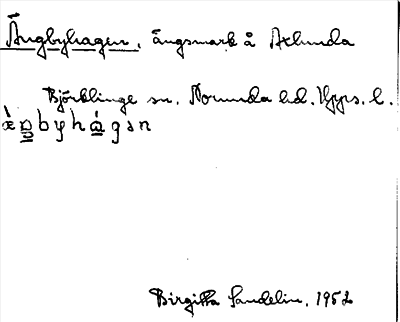 Ängbyhagen, ängsmark å Axlunda
Björklinge sn. Norunda hd. Upps. l.
æ̀ŋbyhágən
Birgitta Sundelin, 1952